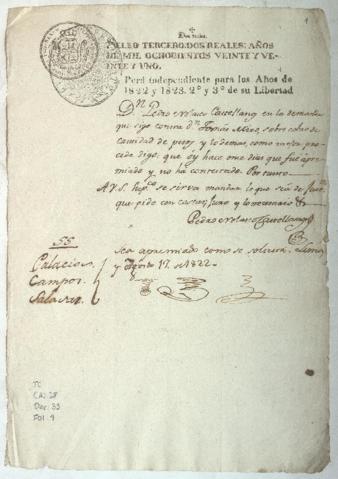 1
Dos reales.
SELLO TERCERO. DOS REALES: AÑOS
DE MIL OCHOCIENTOS VEINTE Y VEINTE Y UNO.
Perú independiente para los Años de
1822 y 1823. 2º y 3º de su Libertad
Dn. Pedro Castellanos en la demanda
que sigo contra dn. Tomas sobre cobro de
cantidad de pesos y lo demas, como mejor
procede digo; que oy hace once dias que fue apre-
miado y no ha contextado. Por tanto
A V.S. se sirva mandar lo que sea de
que pide con costas, juro y lo necesario &
Pedro Castellanos
SS.
Palacios
Campo
Salazar
Sea apremiado como se solicita. Lima
y Agosto 17 de 1822.
TC
CA: 28
Doc: 33
Fol: 1